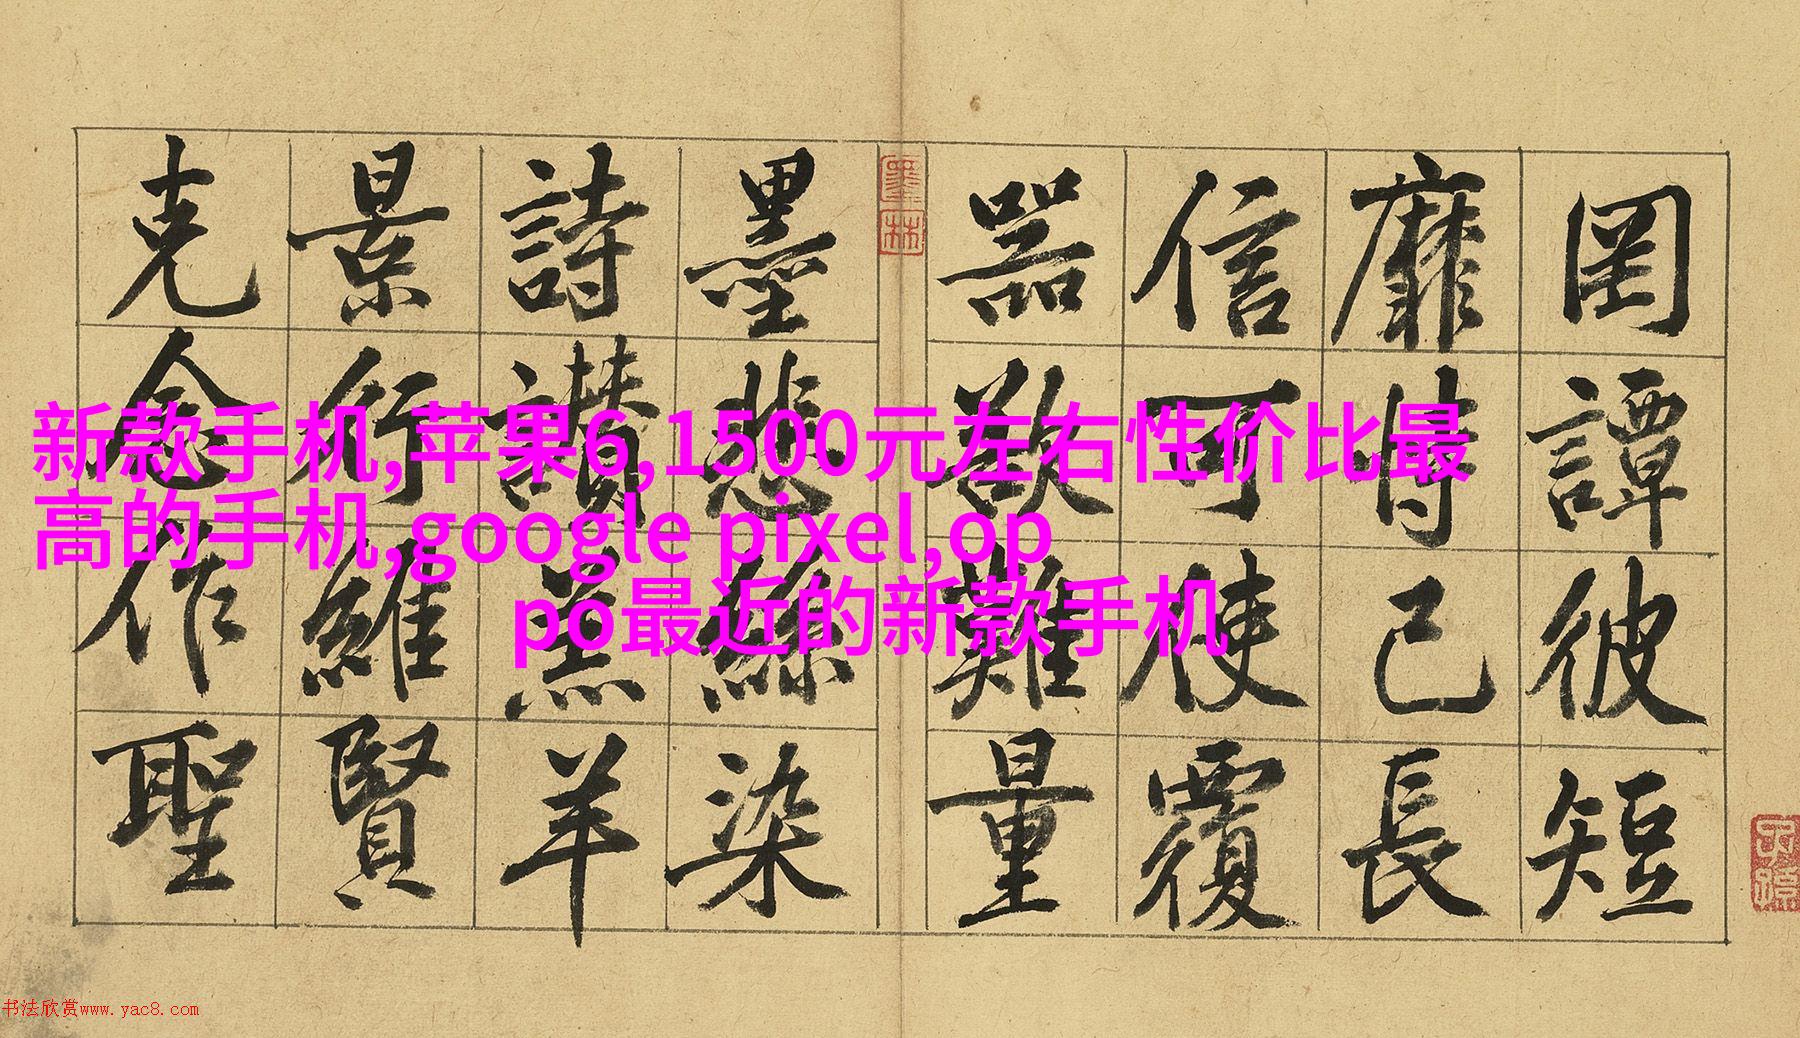 新款手机,苹果6,1500元左右性价比最
高的手机,google pixel,op
po最近的新款手机
罔譚彼短
靡恃己長
信可使覆
器欲難量
墨林
墨悲絲染
詩讚羔羊
景行維賢
克念作聖
书法欣赏www.yac8.com